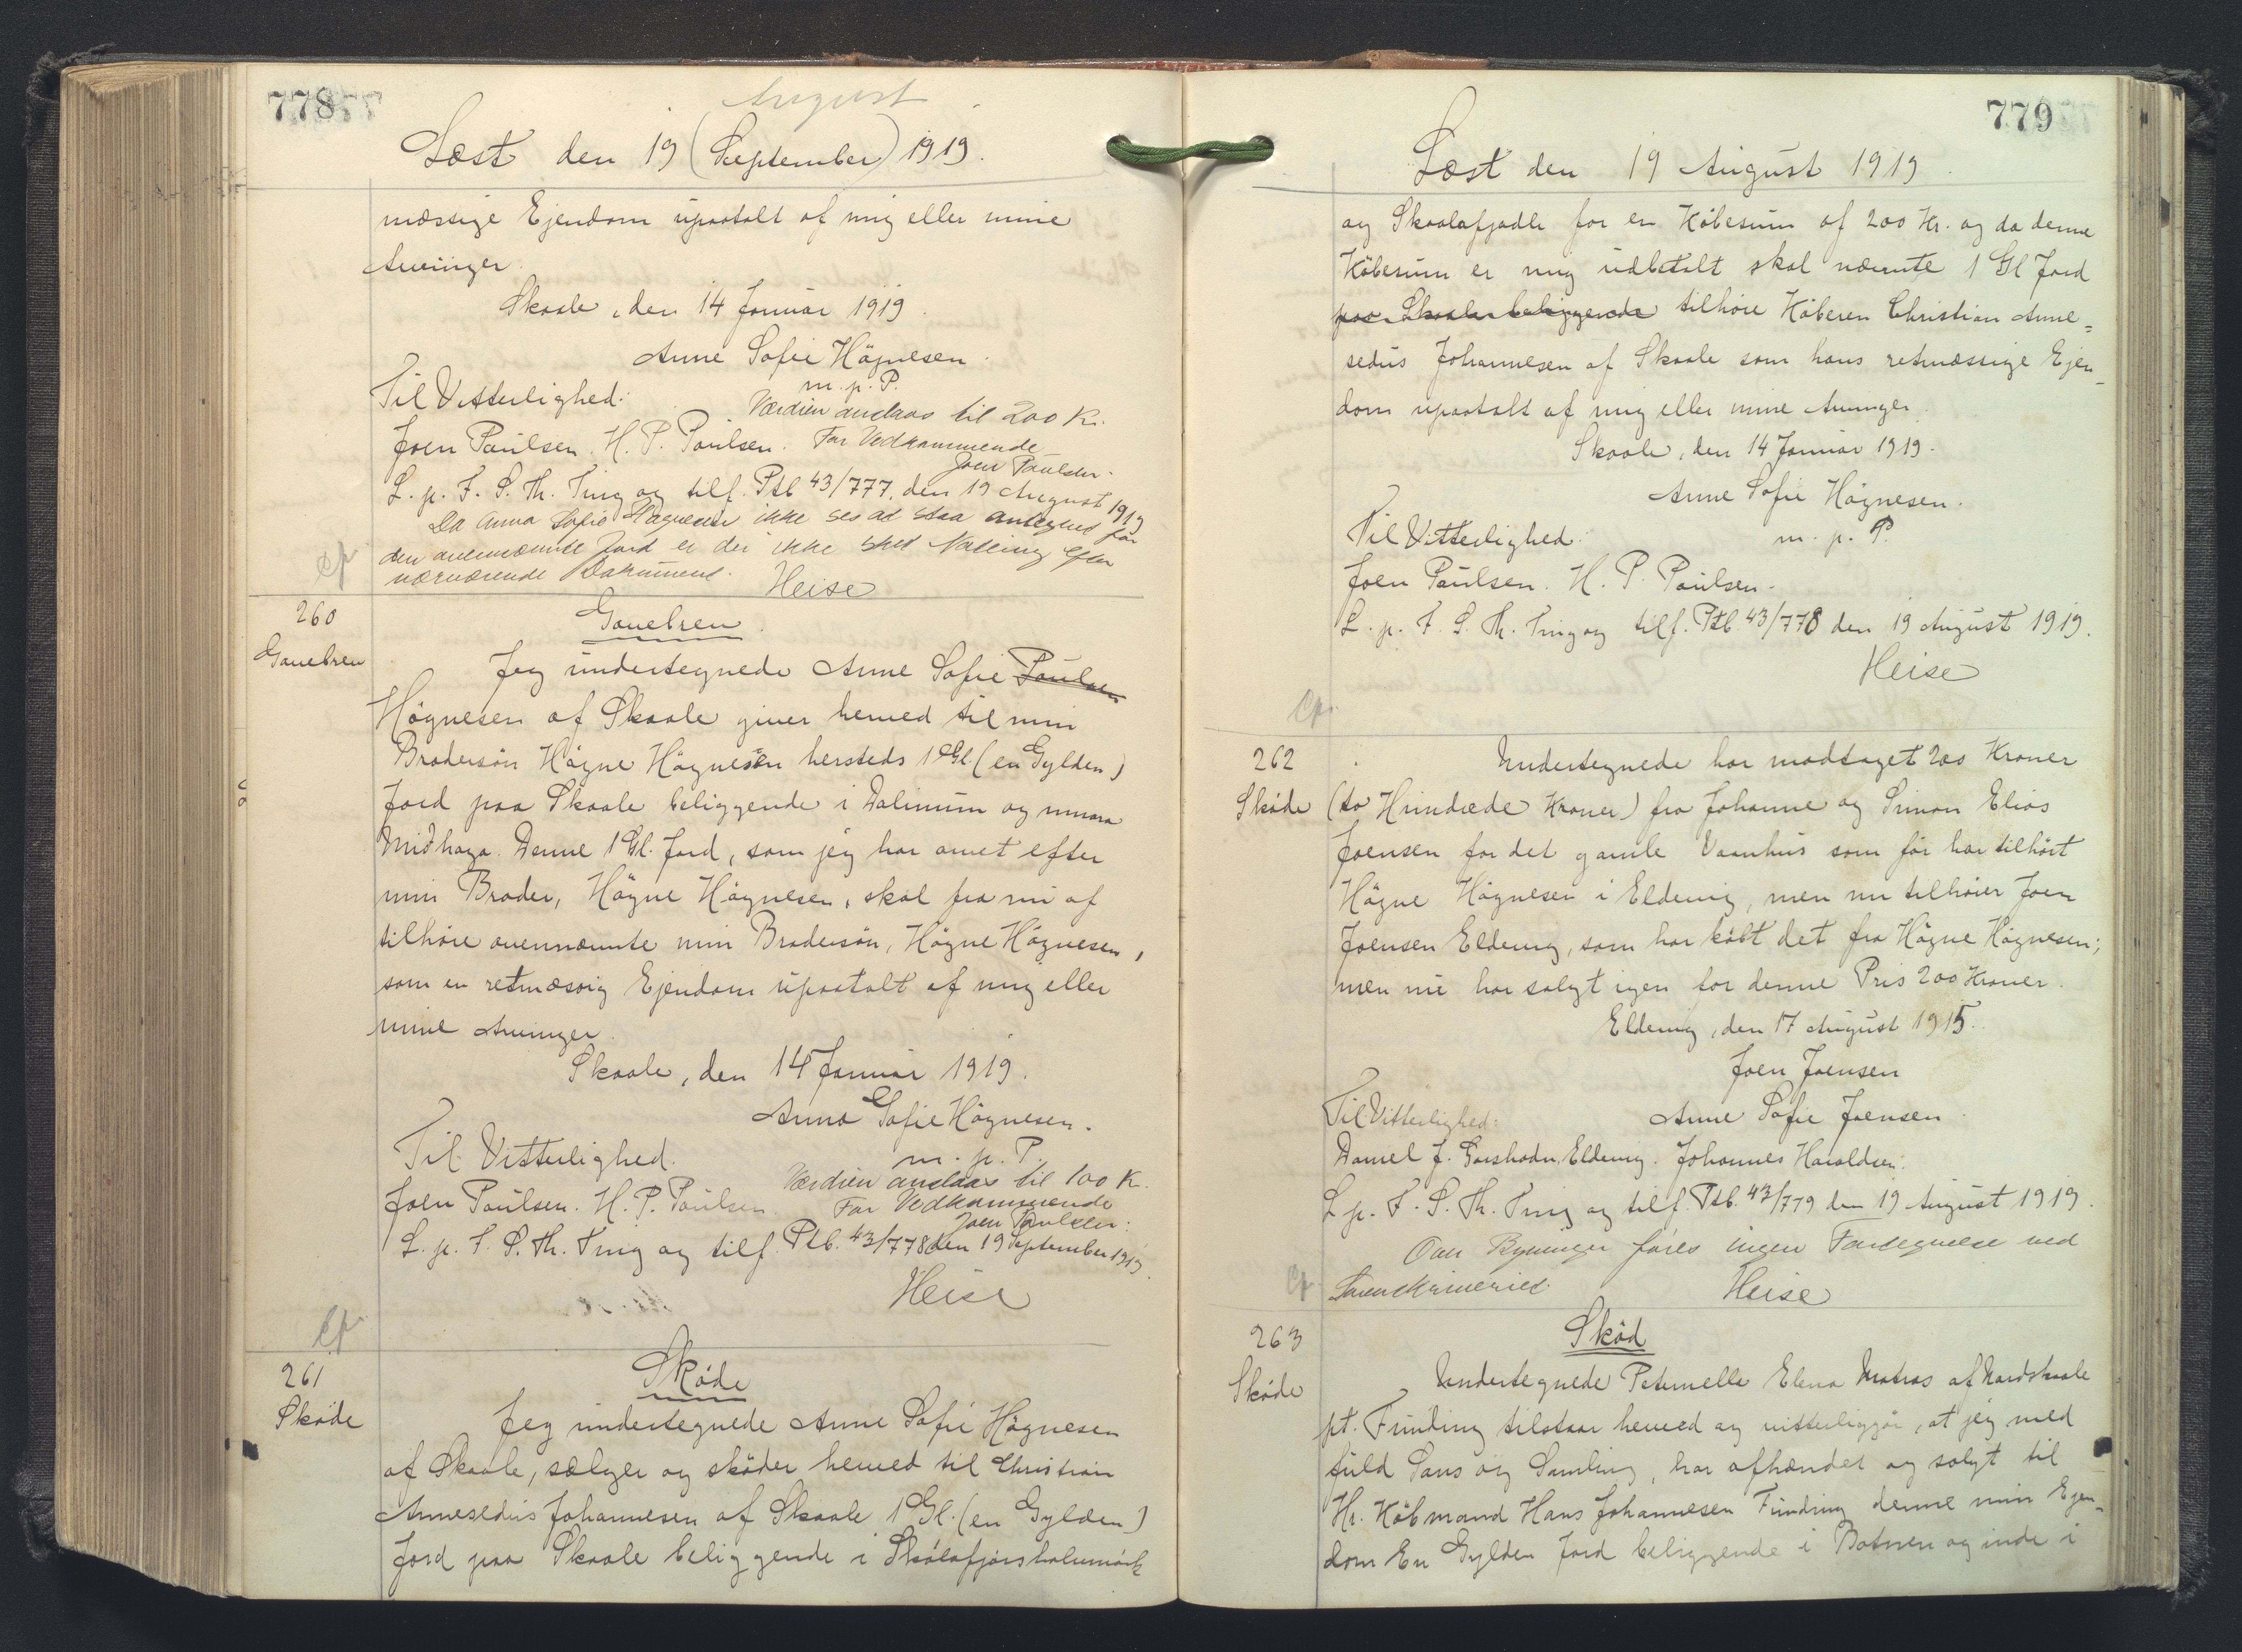 778
August
Læst den 19 (September) 1919.
mæssige Ejendom upaatalt af mig eller mine
Arvinger.
Skaale, den 14 Januar 1919.
Anne Sofie Högnesen.
m. p. P.
Til Vitterlighed:
Værdien anslaas til 200 Kr.
Joen Paulsen. H. P. Paulsen. For Vedkommende
Joen Paulsen.
L. p. F. S. Th. Ting og tilf. Ptb 43/777, den 19 August 1919
Da Anna Sofie Høgnesen ikke ses at staa antegnet for
den ovennævnte Jord er der ikke sket Notering efter
nærværende Dokument. Heise
cp
260
Gavebrev
Gavebrev.
Jeg undertegnede Anne Sofie Paulsen
Högnesen af Skaale giver herved til min
Brodersön Högne Högnesen hersteds 1 Gl. (en Gylden)
Jord paa Skaale beliggende i Dalinum og innara
Miðhaga. Denne 1 Gl. Jord, som jeg har arvet efter
min Broder, Högne Högnesen, skal fra nu af
tilhöre ovennævnte min Brodersön, Högne Högnesen,
som en retmæssig Ejendom upaatalt af mig eller
mine Arvinger.
Skaale, den 14 Januar 1919.
Anna Sofie Högnesen.
m. p. P.
Til Vitterlighed.
Værdien anslaas til 100 Kr.
Joen Paulsen. H. P. Paulsen. For Vedkommende
Joen Paulsen.
L. p. F. S. Th. Ting og tilf. Ptb. 43/778 den 19 September 1919.
Heise
cp
261
Sköde
Sköde
Jeg undertegnede Anne Sofie Högnesen
af Skaale, sælger og sköder herved til Christian
Annesedius Johannesen af Skaale 1 Gl. (en Gylden)
Jord paa Skaale beliggende i
779
Læst den 19 August 1919.
og Skaalafjadle for en Köbesum af 200 Kr. og da denne
Köbesum er mig udbetalt skal nævnte 1 Gl Jord
paa Skaale beliggende tilhöre Köberen Christian Anne=
sedius Johannesen af Skaale som hans retmæssige Ejen-
dom upaatalt af mig eller mine Arvinger.
Skaale, den 14 Januar 1919.
Anne Sofie Högnesen.
Til Vitterlighed: m. p. P.
Joen Paulsen. H. P. Paulsen.
L. p. F. S. Th. Ting og tilf. Ptb. 43/778 den 19 August 1919.
Heise
cp.
262
Sköde
Undertegnede har modtaget 200 Kroner
(to Hundrede Kroner) fra Johanne og Simon Elias
Joensen for det gamle Vaanhus som för har tilhört
Högne Högnesen i Eldevig, men nu tilhörer Joen
Joensen Eldevig, som har köbt det fra Högne Högnesen;
men nu har solgt igen for denne Pris 200 Kroner.
Eldevig, den 17 August 1915.
Joen Joensen
Til Vitterlighed: Anne Sofie Joensen.
Daniel J. Eldevig. Johannes Haraldsen.
L. p. F. S. Th. Ting og tilf. Ptb. 43/779 den 19 August 1919.
Over Bygninger føres ingen Fortegnelse ved
Sorenskriveriet. Heise
cp.
263
Sköde
Sköd
Undertegnede Petrinelle Elena Matras af Nordskaale
pt. Funding tilstaar herved og vitterliggör, at jeg med
fuld Sans og Samling, har afhændet og solgt til
Hr. Köbmand Hans Johannesen Funding denne min Ejen-
dom En Gylden Jord beliggende i Botnen og inde i